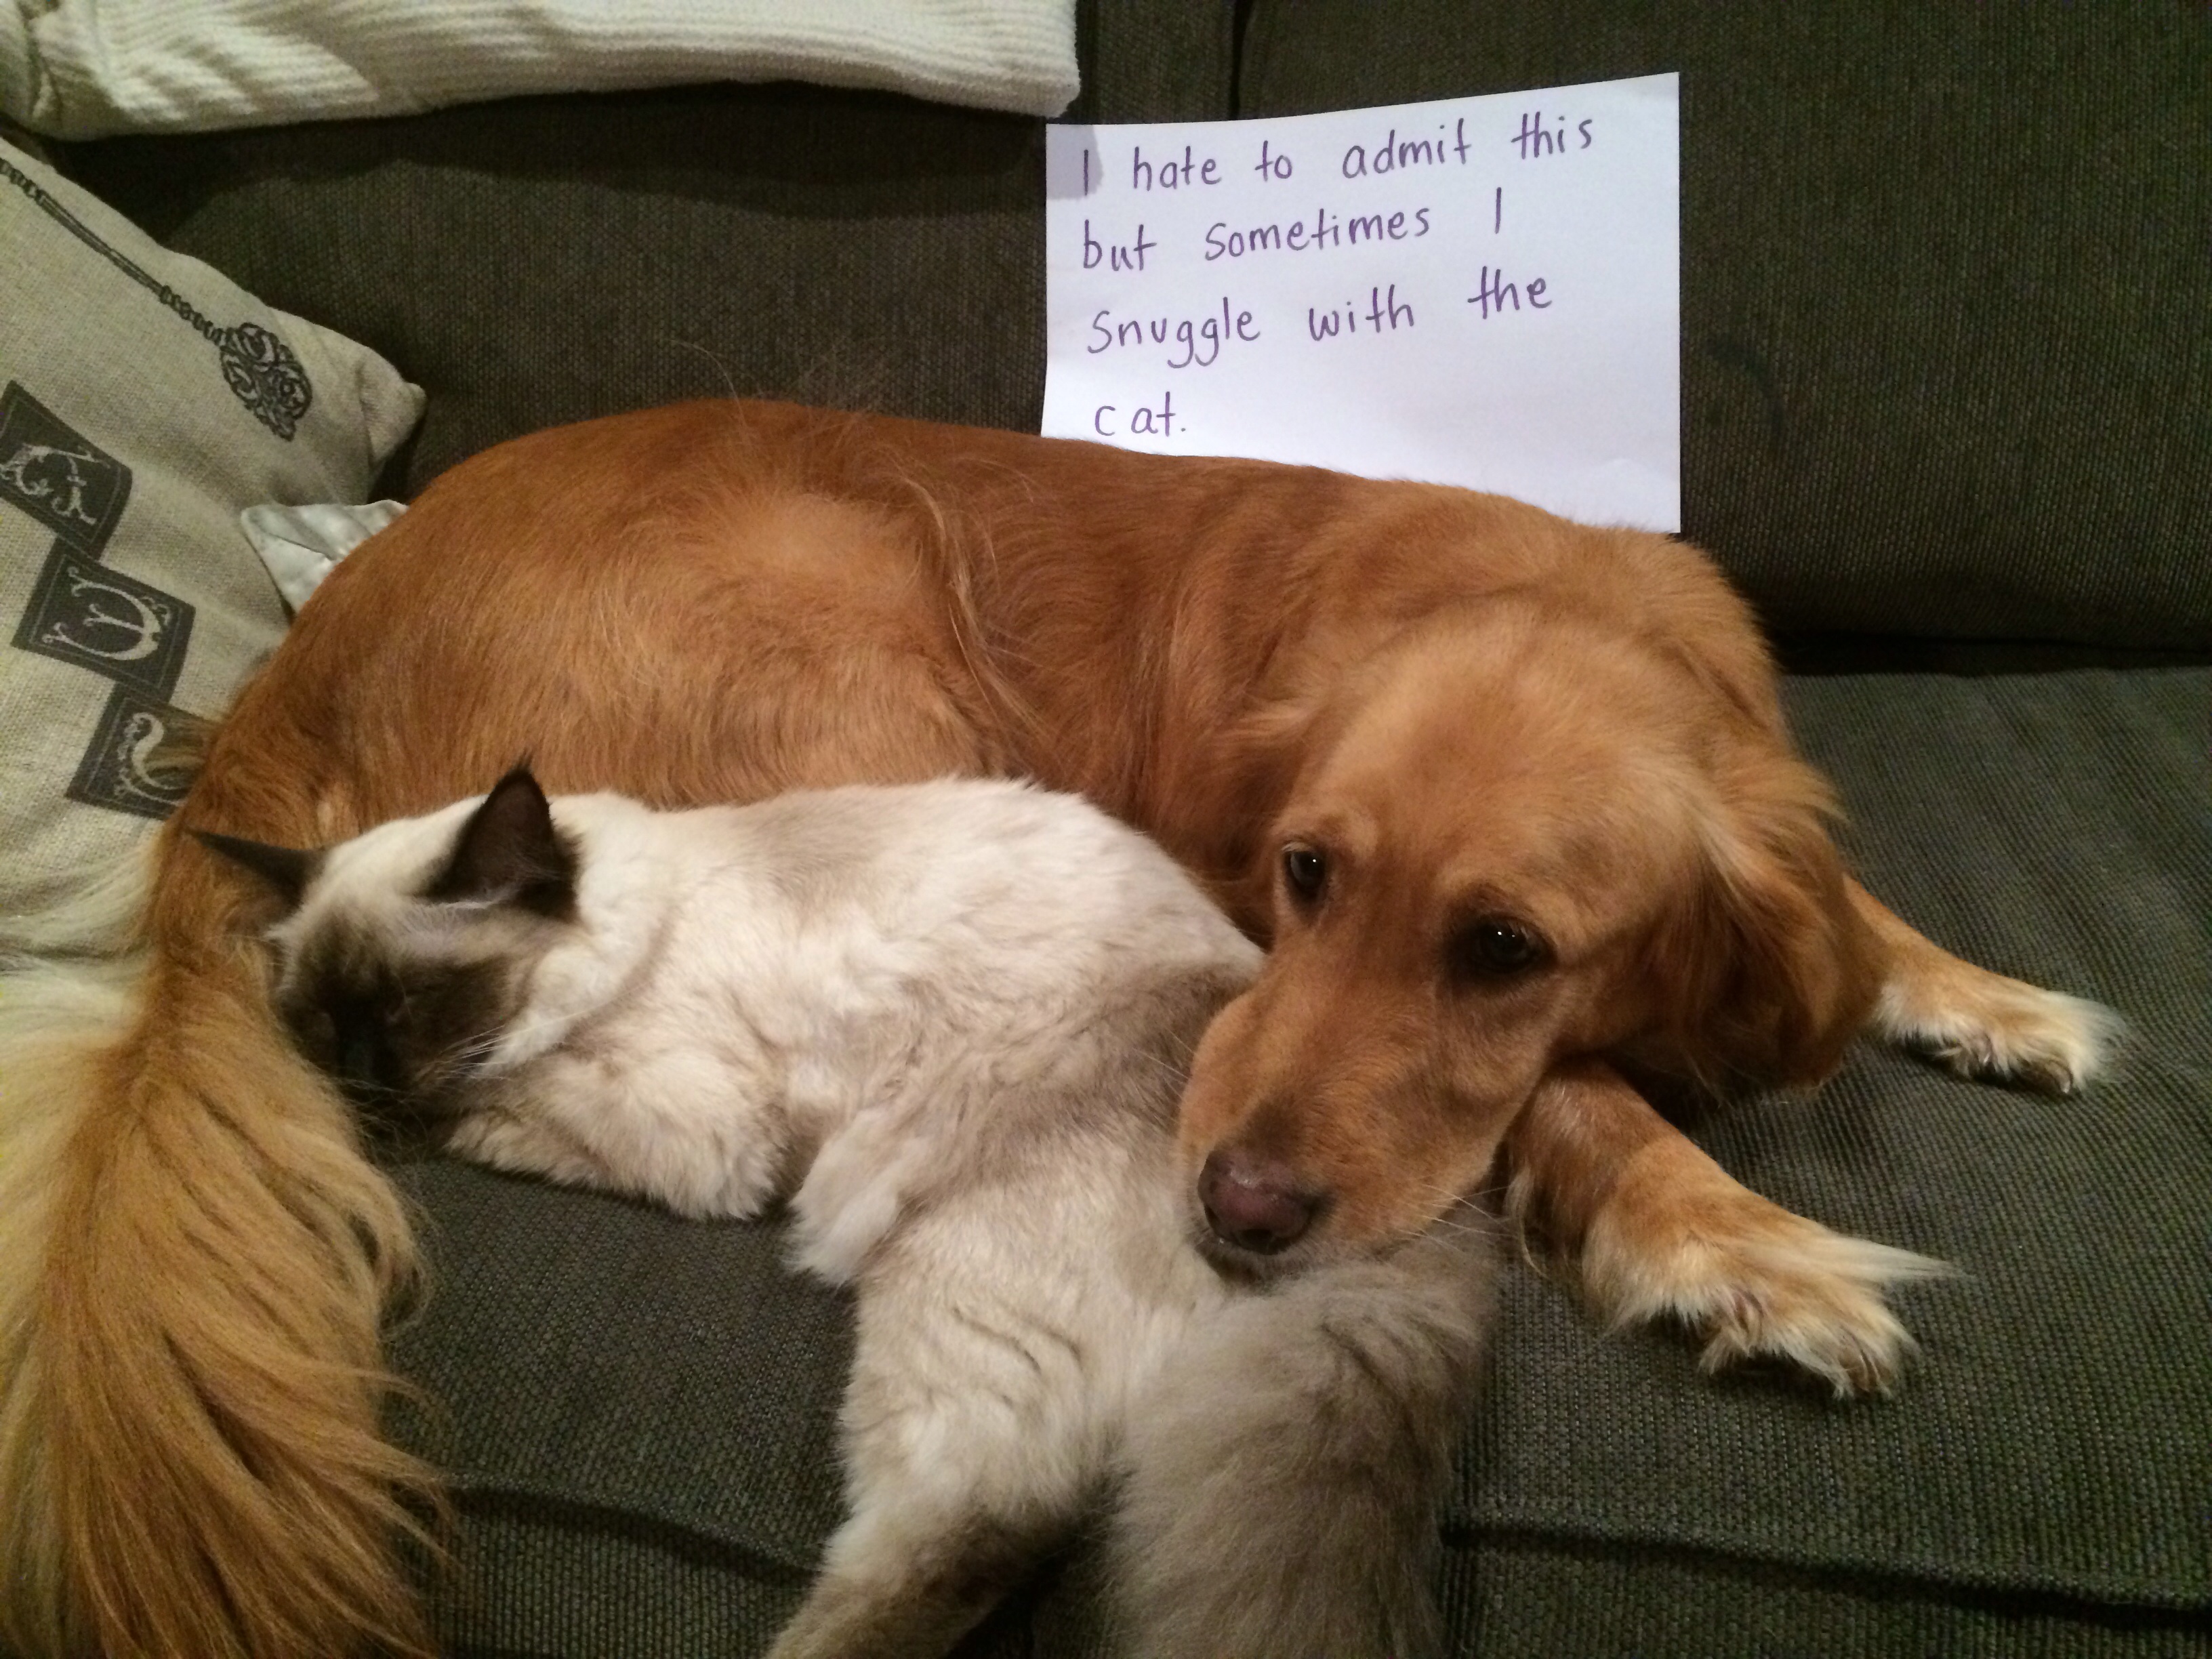 I hate to admit this
but sometimes I
snuggle with the
cat.